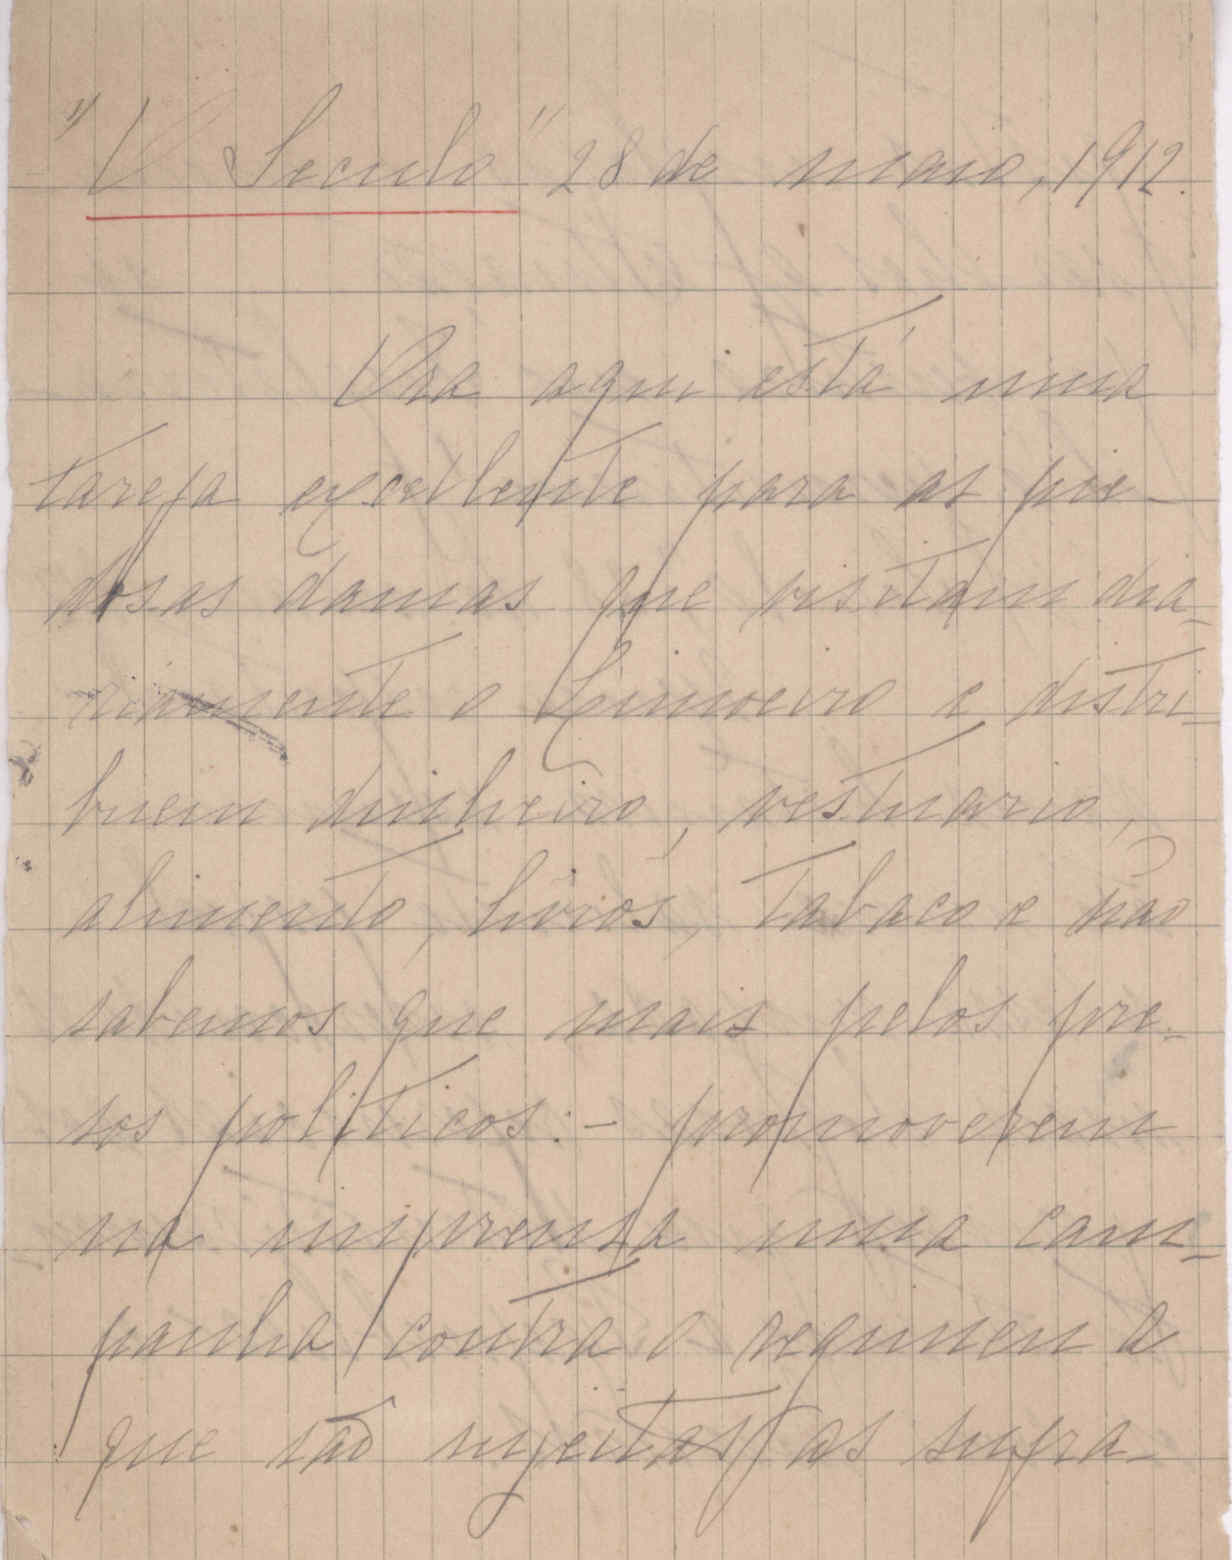 "O Seculo" 28 de maio, 1912.
Ora aqui está uma
tarefa excellente para as pie-
dosas damas que visitam dia-
riamente o Limoeiro e distri-
buem dinheiro, vestuario,
alimento, livros, tabaco e não
sabemos que mais pelos pre-
sos politicos: - promoverem
na imprensa uma cam-
panha contra o regimen a
que são sujeitas as sufra-